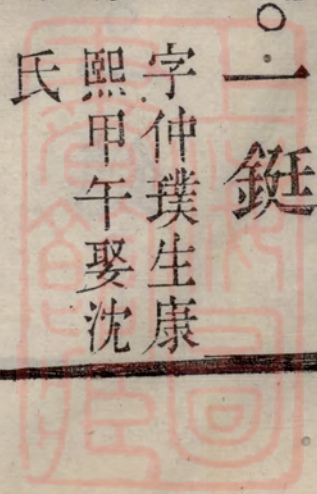 一鋌
字仲璞生康
熙甲午娶沈
氏